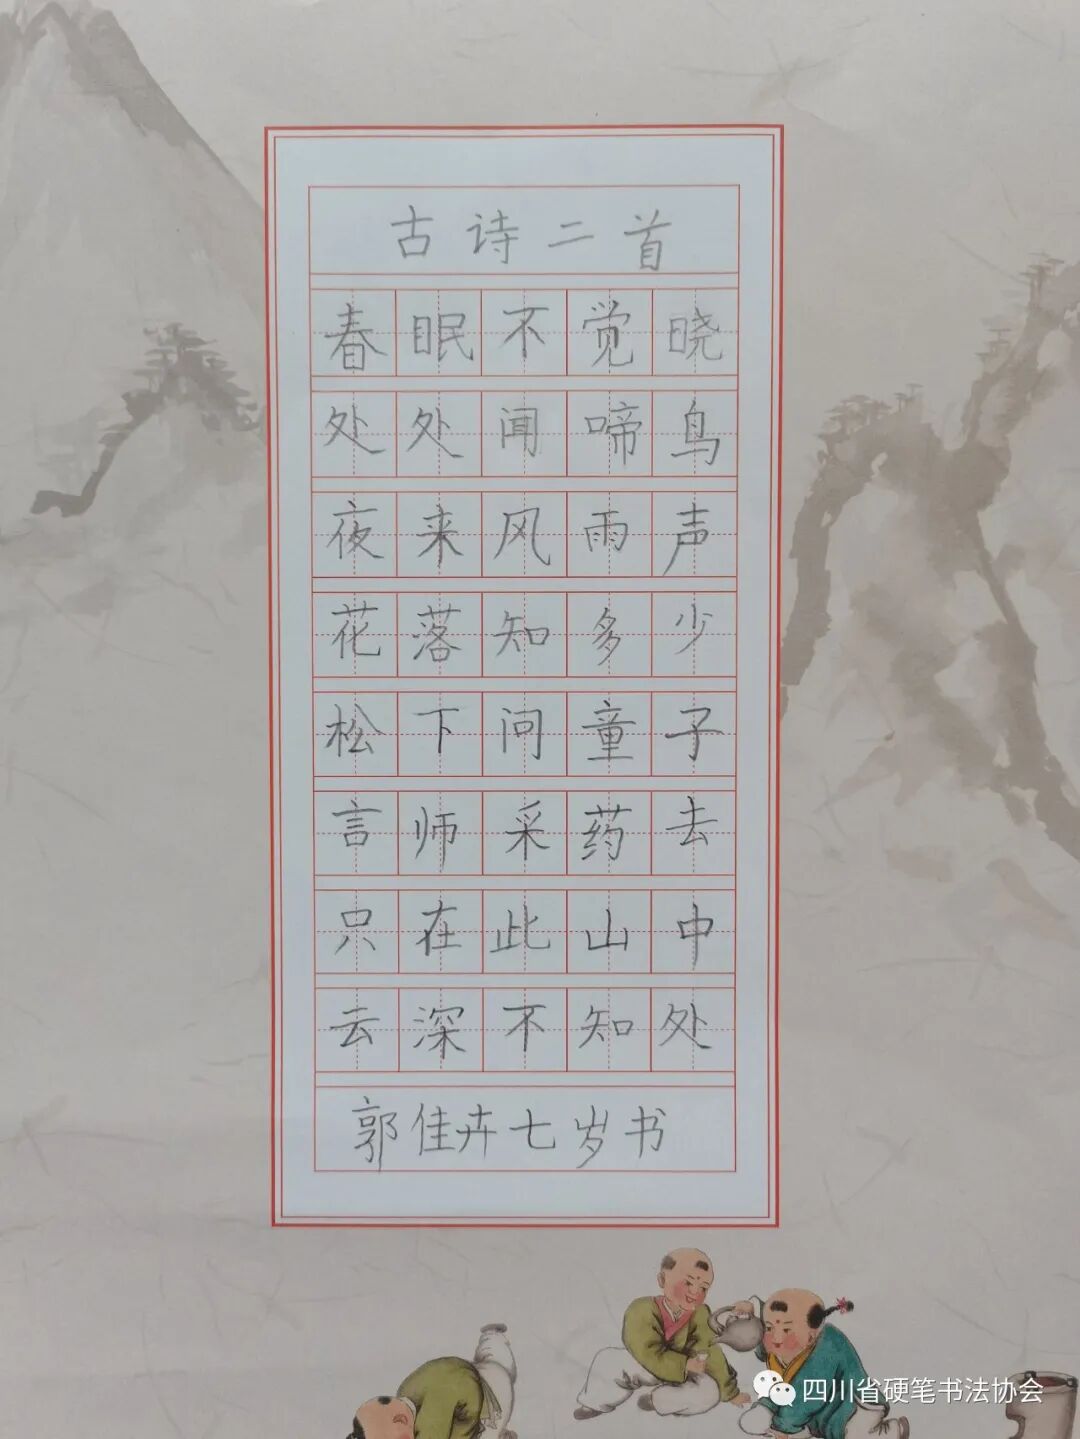 古诗二首
春眠不觉晓
处处闻啼鸟
夜来风雨声
花落知多少
松下问童子
言师采药去
只在此山中
云深不知处
郭佳卉七岁书
四川省硬笔书法协会